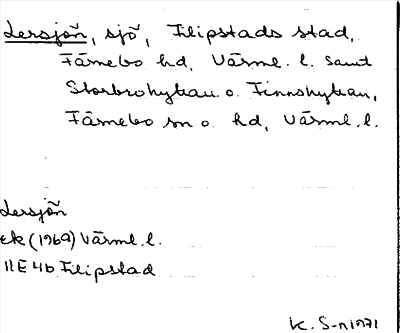 Lersjön, sjö, Filipstads stad,
Färnebo hd, Värml. l. samt
Storbrohyttan o. Finnshyttan,
Färnebo sn o. hd, Värml. l.
Lersjön
ek (1969) Värml. l.
11E 4b Filipstad
K. S-n 1971